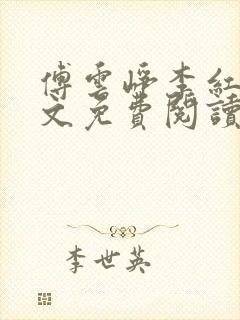 傅雲崢李紅
文免費閱讀
李世英